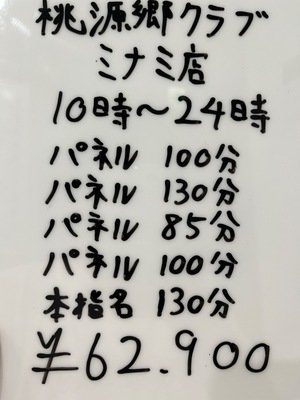 桃源郷クラブ
ミナミ店
10時～24時
パネル 100分
パネル 130分
パネル 85分
パネル 100分
本指名 130分
¥62.900